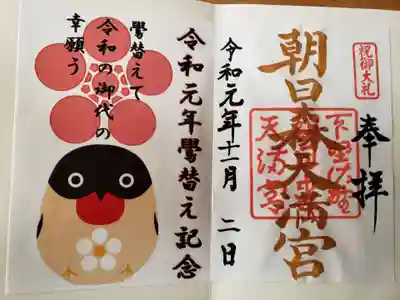 祝御大礼
奉拝
朝日森天満宮
天満宮
令和元年十一月 二日
令和元年鷽替え記念
鷽替えて
令和の御代の
幸願う